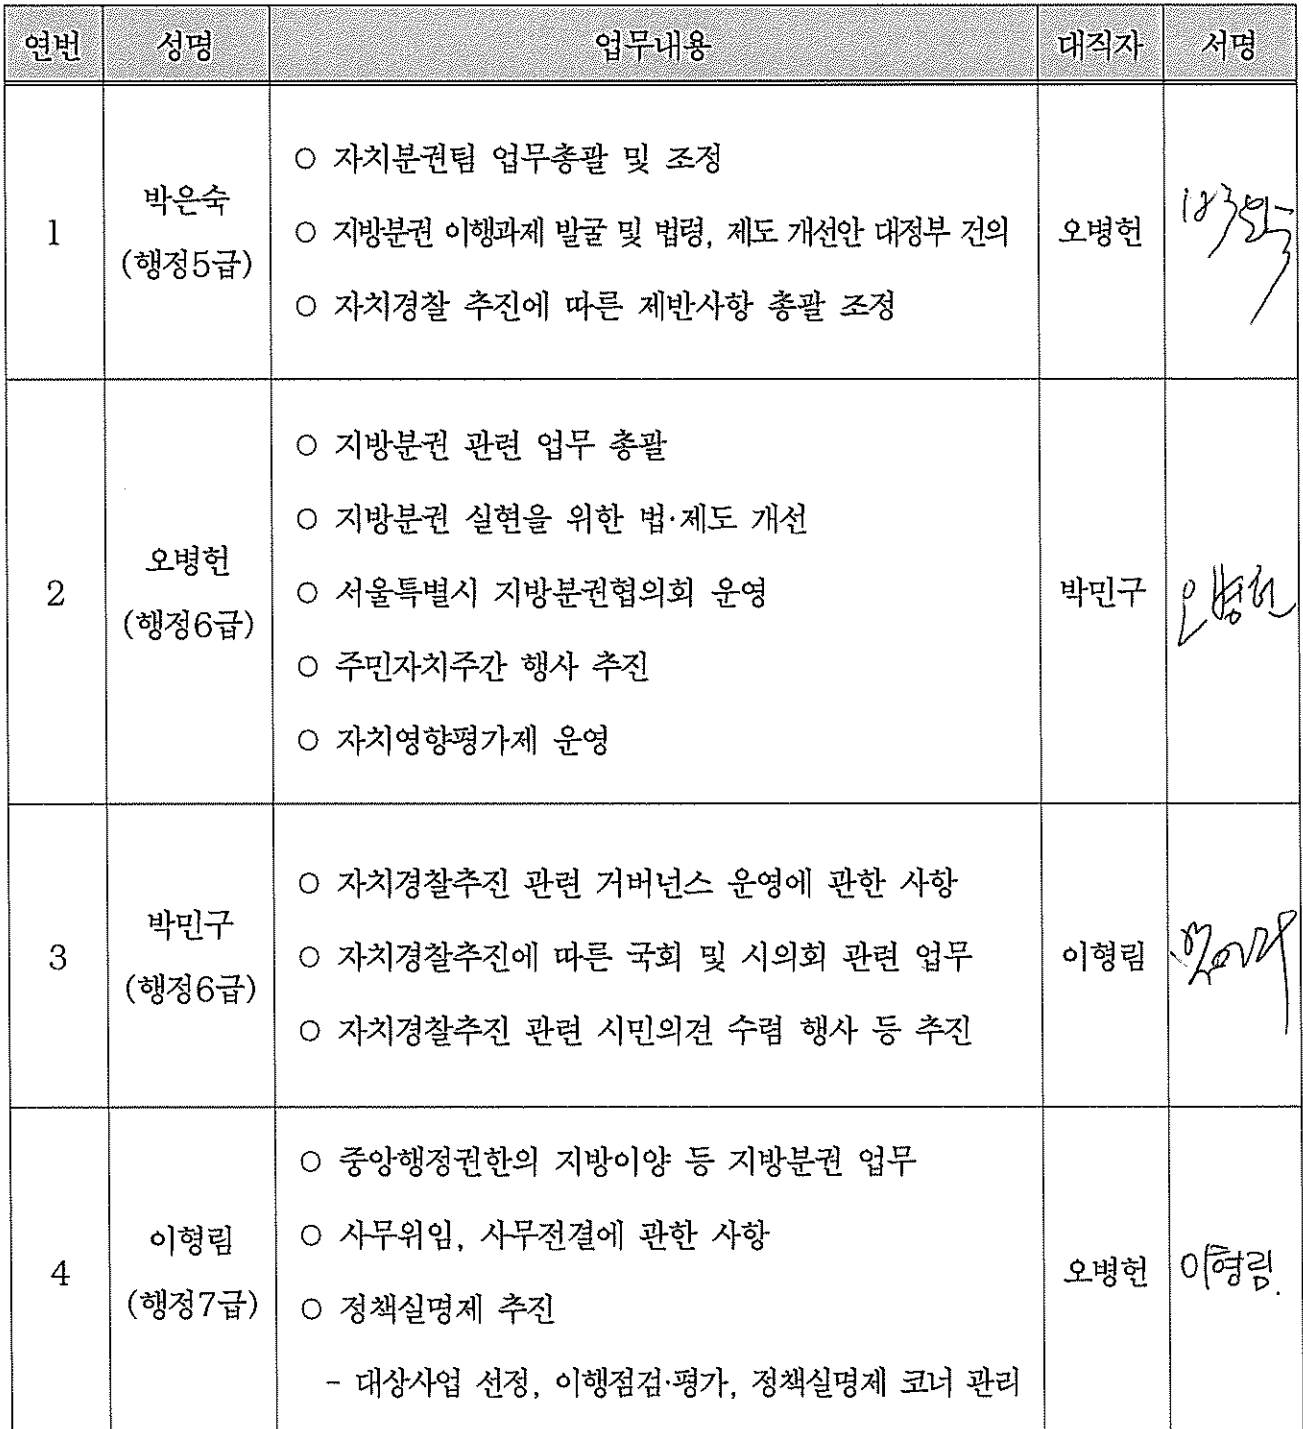 연번 성명 업무내용 대직자 서명
1
박은숙
(행정5급)
○ 자치분권팀 업무총괄 및 조정
○ 지방분권 이행과제 발굴 및 법령, 제도 개선안 대정부 건의
○ 자치경찰 추진에 따른 제반사항 총괄 조정
오병헌
2
오병헌
(행정6급)
○ 지방분권 관련 업무 총괄
○ 지방분권 실현을 위한 법·제도 개선
○ 서울특별시 지방분권협의회 운영
○ 주민자치주간 행사 추진
○ 자치영향평가제 운영
박민구
오병헌
3
박민구
(행정6급)
○ 자치경찰추진 관련 거버넌스 운영에 관한 사항
○ 자치경찰추진에 따른 국회 및 시의회 관련 업무
○ 자치경찰추진 관련 시민의견 수렴 행사 등 추진
이형림
4
이형림
(행정7급)
○ 중앙행정권한의 지방이양 등 지방분권 업무
○ 사무위임, 사무전결에 관한 사항
○ 정책실명제 추진
- 대상사업 선정, 이행점검·평가, 정책실명제 코너 관리
오병헌
이형림.